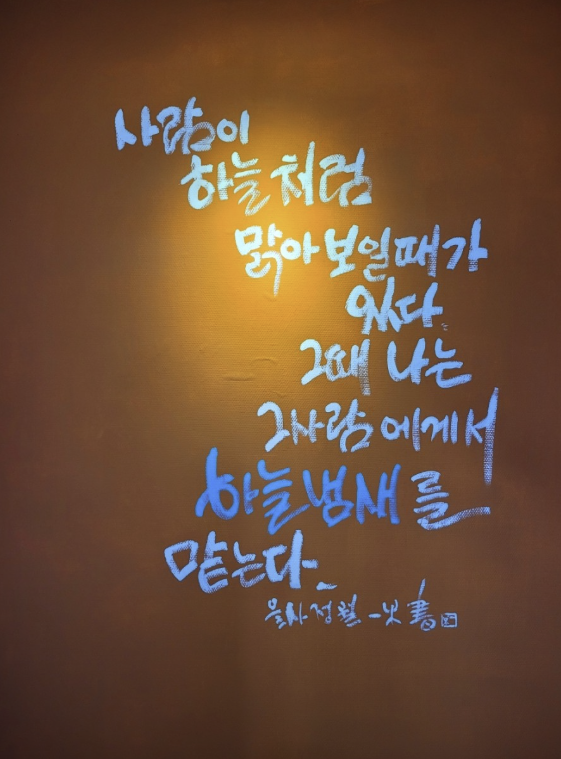 사람이
하늘처럼
맑아보일때가
있다.
그때 나는
그사람에게서
하늘냄새를
맡는다-
을사정월 書